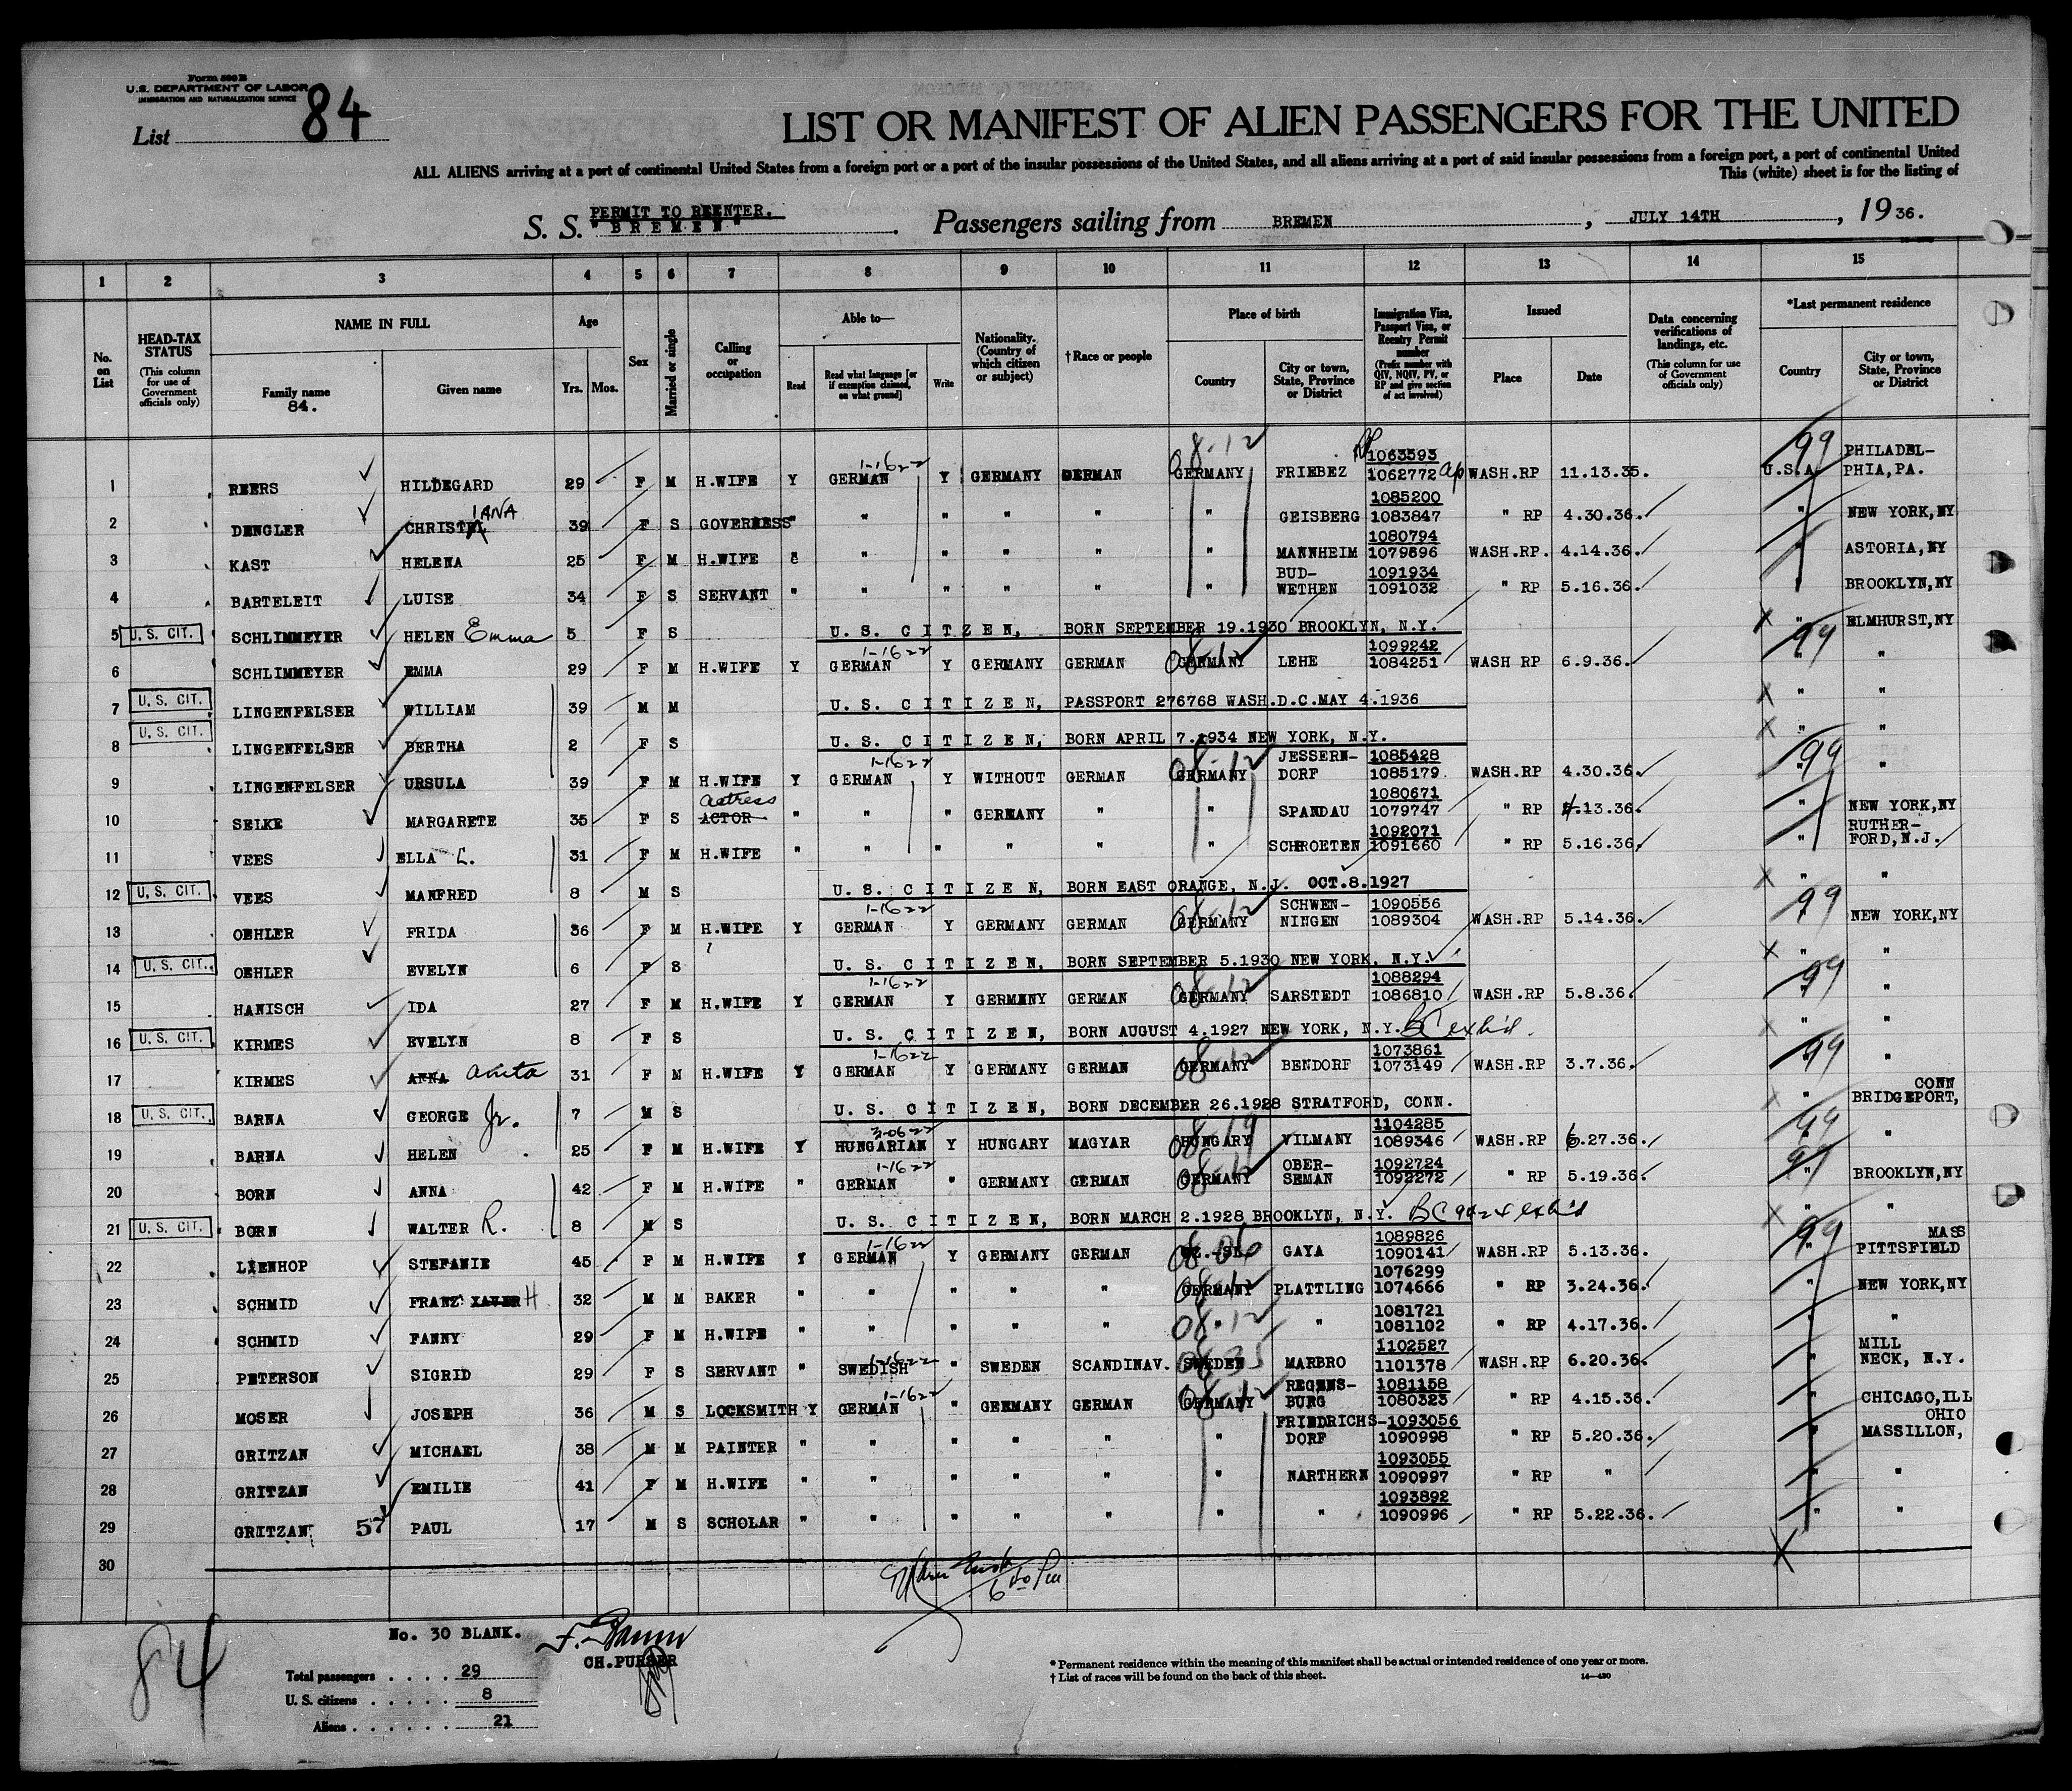 Form 500 B
U.S. DEPARTMENT OF LABOR
IMMIGRATION AND NATURALIZATION SERVICE
List 84
LIST OR MANIFEST OF ALIEN PASSENGERS FOR THE UNITED
ALL ALIENS arriving at a port of continental United States from a foreign port or a port of the insular possessions of the United States, and all aliens arriving at a port of said insular possessions from a foreign port, a port of continental United
This (white) sheet is for the listing of
PERMIT TO REENTER.
S. S. "BREMEN". Passengers sailing from BREMEN, JULY 14TH, 1936.
1 2 3 4 5 6 7 8 9 10 11 12 13 14 15
No. on List
HEAD-TAX STATUS (This column for use of Government officials only)
NAME IN FULL
Family name 84.
Given name
Age
Yrs. Mos.
Sex
Married or single
Calling or occupation
Able to—
Read
Read what language [or if exemption claimed, on what ground]
Write
Nationality. (Country of which citizen or subject)
†Race or people
Place of birth
Country
City or town, State, Province or District
Immigration Visa, Passport Visa, or Reentry Permit number (Prefix number with QIV, NQIV, PV, or RP and give section of act involved)
Issued
Place
Date
Data concerning verifications of landings, etc. (This column for use of Government officials only)
*Last permanent residence
Country
City or town, State, Province or District
1 REERS HILDEGARD 29 F M H.WIFE Y GERMAN 1-1622 Y GERMANY GERMAN GERMANY 08-12 FRIEBEZ 1063593 1062772 WASH.RP 11.13.35. U.S.A. 99 PHILADEL-PHIA,PA.
2 DENGLER CHRISTIANA 39 F S GOVERNESS " " " " " " GEISBERG 1085200 1083847 " RP 4.30.36. " NEW YORK,NY
3 KAST HELENA 25 F M H.WIFE " " " " " MANNHEIM 1080794 1079896 WASH.RP. 4.14.36. " ASTORIA,NY
4 BARTELEIT LUISE 34 F S SERVANT " " " " " " BUD-WETHEN 1091934 1091032 " RP 5.16.36. BROOKLYN,NY
5 U.S. CIT. SCHLIMMEYER HELEN Emma 5 F S U.S. CITIZEN, BORN SEPTEMBER 19.1930 BROOKLYN, N.Y. X " ELMHURST,NY
6 SCHLIMMEYER EMMA 29 F M H.WIFE Y GERMAN 1-1622 Y GERMANY GERMAN GERMANY 08-12 LEHE 1099242 1084251 WASH RP 6.9.36. 99 " "
7 U.S. CIT. LINGENFELSER WILLIAM 39 M M U.S. CITIZEN, PASSPORT 276768 WASH.D.C.MAY 4.1936 X " "
8 U.S. CIT. LINGENFELSER BERTHA 2 F S U.S. CITIZEN, BORN APRIL 7.1934 NEW YORK, N.Y. X " "
9 LINGENFELSER URSULA 39 F M H.WIFE Y GERMAN 1-1622 Y WITHOUT GERMAN GERMANY 08-12 JESSERN-DORF 1085428 1085179 WASH.RP 4.30.36. 99 " "
10 SELKE MARGARETE 35 F S ACTOR actress " " " GERMANY " " SPANDAU 1080671 1079747 " RP 4.13.36. " NEW YORK,NY
11 VEES ELLA L. 31 F M H.WIFE " " " " " " SCHROETEN 1092071 1091660 " RP 5.16.36. " RUTHER-FORD,N.J.
12 U.S. CIT. VEES MANFRED 8 M S U.S. CITIZEN, BORN EAST ORANGE, N.J. OCT.8.1927 X " "
13 OEHLER FRIDA 36 F M H.WIFE Y GERMAN 1-1622 Y GERMANY GERMAN GERMANY 08-12 SCHWEN-NINGEN 1090556 1089304 WASH.RP 5.14.36. 99 " NEW YORK,NY
14 U.S. CIT. OEHLER EVELYN 6 F S U.S. CITIZEN, BORN SEPTEMBER 5.1930 NEW YORK, N.Y. X " "
15 HANISCH IDA 27 F M H.WIFE Y GERMAN 1-1622 Y GERMANY GERMAN GERMANY 08-12 SARSTEDT 1088294 1086810 WASH.RP 5.8.36. 99 " "
16 U.S. CIT. KIRMES EVELYN 8 F S U.S. CITIZEN, BORN AUGUST 4.1927 NEW YORK, N.Y. BC exh'd. X " "
17 KIRMES ANNA Anita 31 F M H.WIFE Y GERMAN 1-1622 Y GERMANY GERMAN GERMANY 08-12 BENDORF 1073861 1073149 WASH.RP 3.7.36. 99 " "
18 U.S. CIT. BARNA GEORGE Jr. 7 M S U.S. CITIZEN, BORN DECEMBER 26.1928 STRATFORD, CONN. X " CONN BRIDGEPORT,
19 BARNA HELEN 25 F M H.WIFE Y HUNGARIAN 3-0622 Y HUNGARY MAGYAR HUNGARY 08-19 VILMANY 1104285 1089346 WASH.RP 6.27.36. 99 " "
20 BORN ANNA 42 F M H.WIFE " GERMAN 1-1622 " GERMANY GERMAN GERMANY 08-12 OBER-SEMAN 1092724 1092272 " RP 5.19.36. 99 " BROOKLYN,NY
21 U.S. CIT. BORN WALTER R. 8 M S U.S. CITIZEN, BORN MARCH 2.1928 BROOKLYN, N.Y. BC exh'd X " "
22 LIENHOP STEFANIE 45 F M H.WIFE Y GERMAN 1-1622 Y GERMANY GERMAN 08-06 GAYA 1089826 1090141 WASH.RP 5.13.36. 99 " MASS PITTSFIELD
23 SCHMID FRANZ XAVER H 32 M M BAKER " " " " " GERMANY 08-12 PLATTLING 1076299 1074666 " RP 3.24.36. " NEW YORK,NY
24 SCHMID FANNY 29 F M H.WIFE " " " " " " 08-12 " 1081721 1081102 " RP 4.17.36. " "
25 PETERSON SIGRID 29 F S SERVANT " SWEDISH 1-1622 " SWEDEN SCANDINAV. SWEDEN 0835 MARBRO 1102527 1101378 WASH.RP 6.20.36. " MILL NECK, N.Y.
26 MOSER JOSEPH 36 M S LOCKSMITH Y GERMAN 1-1622 " GERMANY GERMAN GERMANY 08-12 REGENS-BURG 1081158 1080323 " RP 4.15.36. " CHICAGO,ILL
27 GRITZAN MICHAEL 38 M M PAINTER " " " " " " FRIEDRICHS-DORF 1093056 1090998 " RP 5.20.36. " OHIO MASSILLON,
28 GRITZAN EMILIE 41 F M H.WIFE " " " " " " NARTHERN 1093055 1090997 " RP " " "
29 GRITZAN 57 PAUL 17 M S SCHOLAR " " " " " " " 1093892 1090996 " RP 5.22.36. " "
30
84
No. 30 BLANK.
CH.PURSER
Total passengers . . . . 29
U. S. citizens . . . . . 8
Aliens . . . . . . 21
* Permanent residence within the meaning of this manifest shall be actual or intended residence of one year or more.
† List of races will be found on the back of this sheet.
14—430